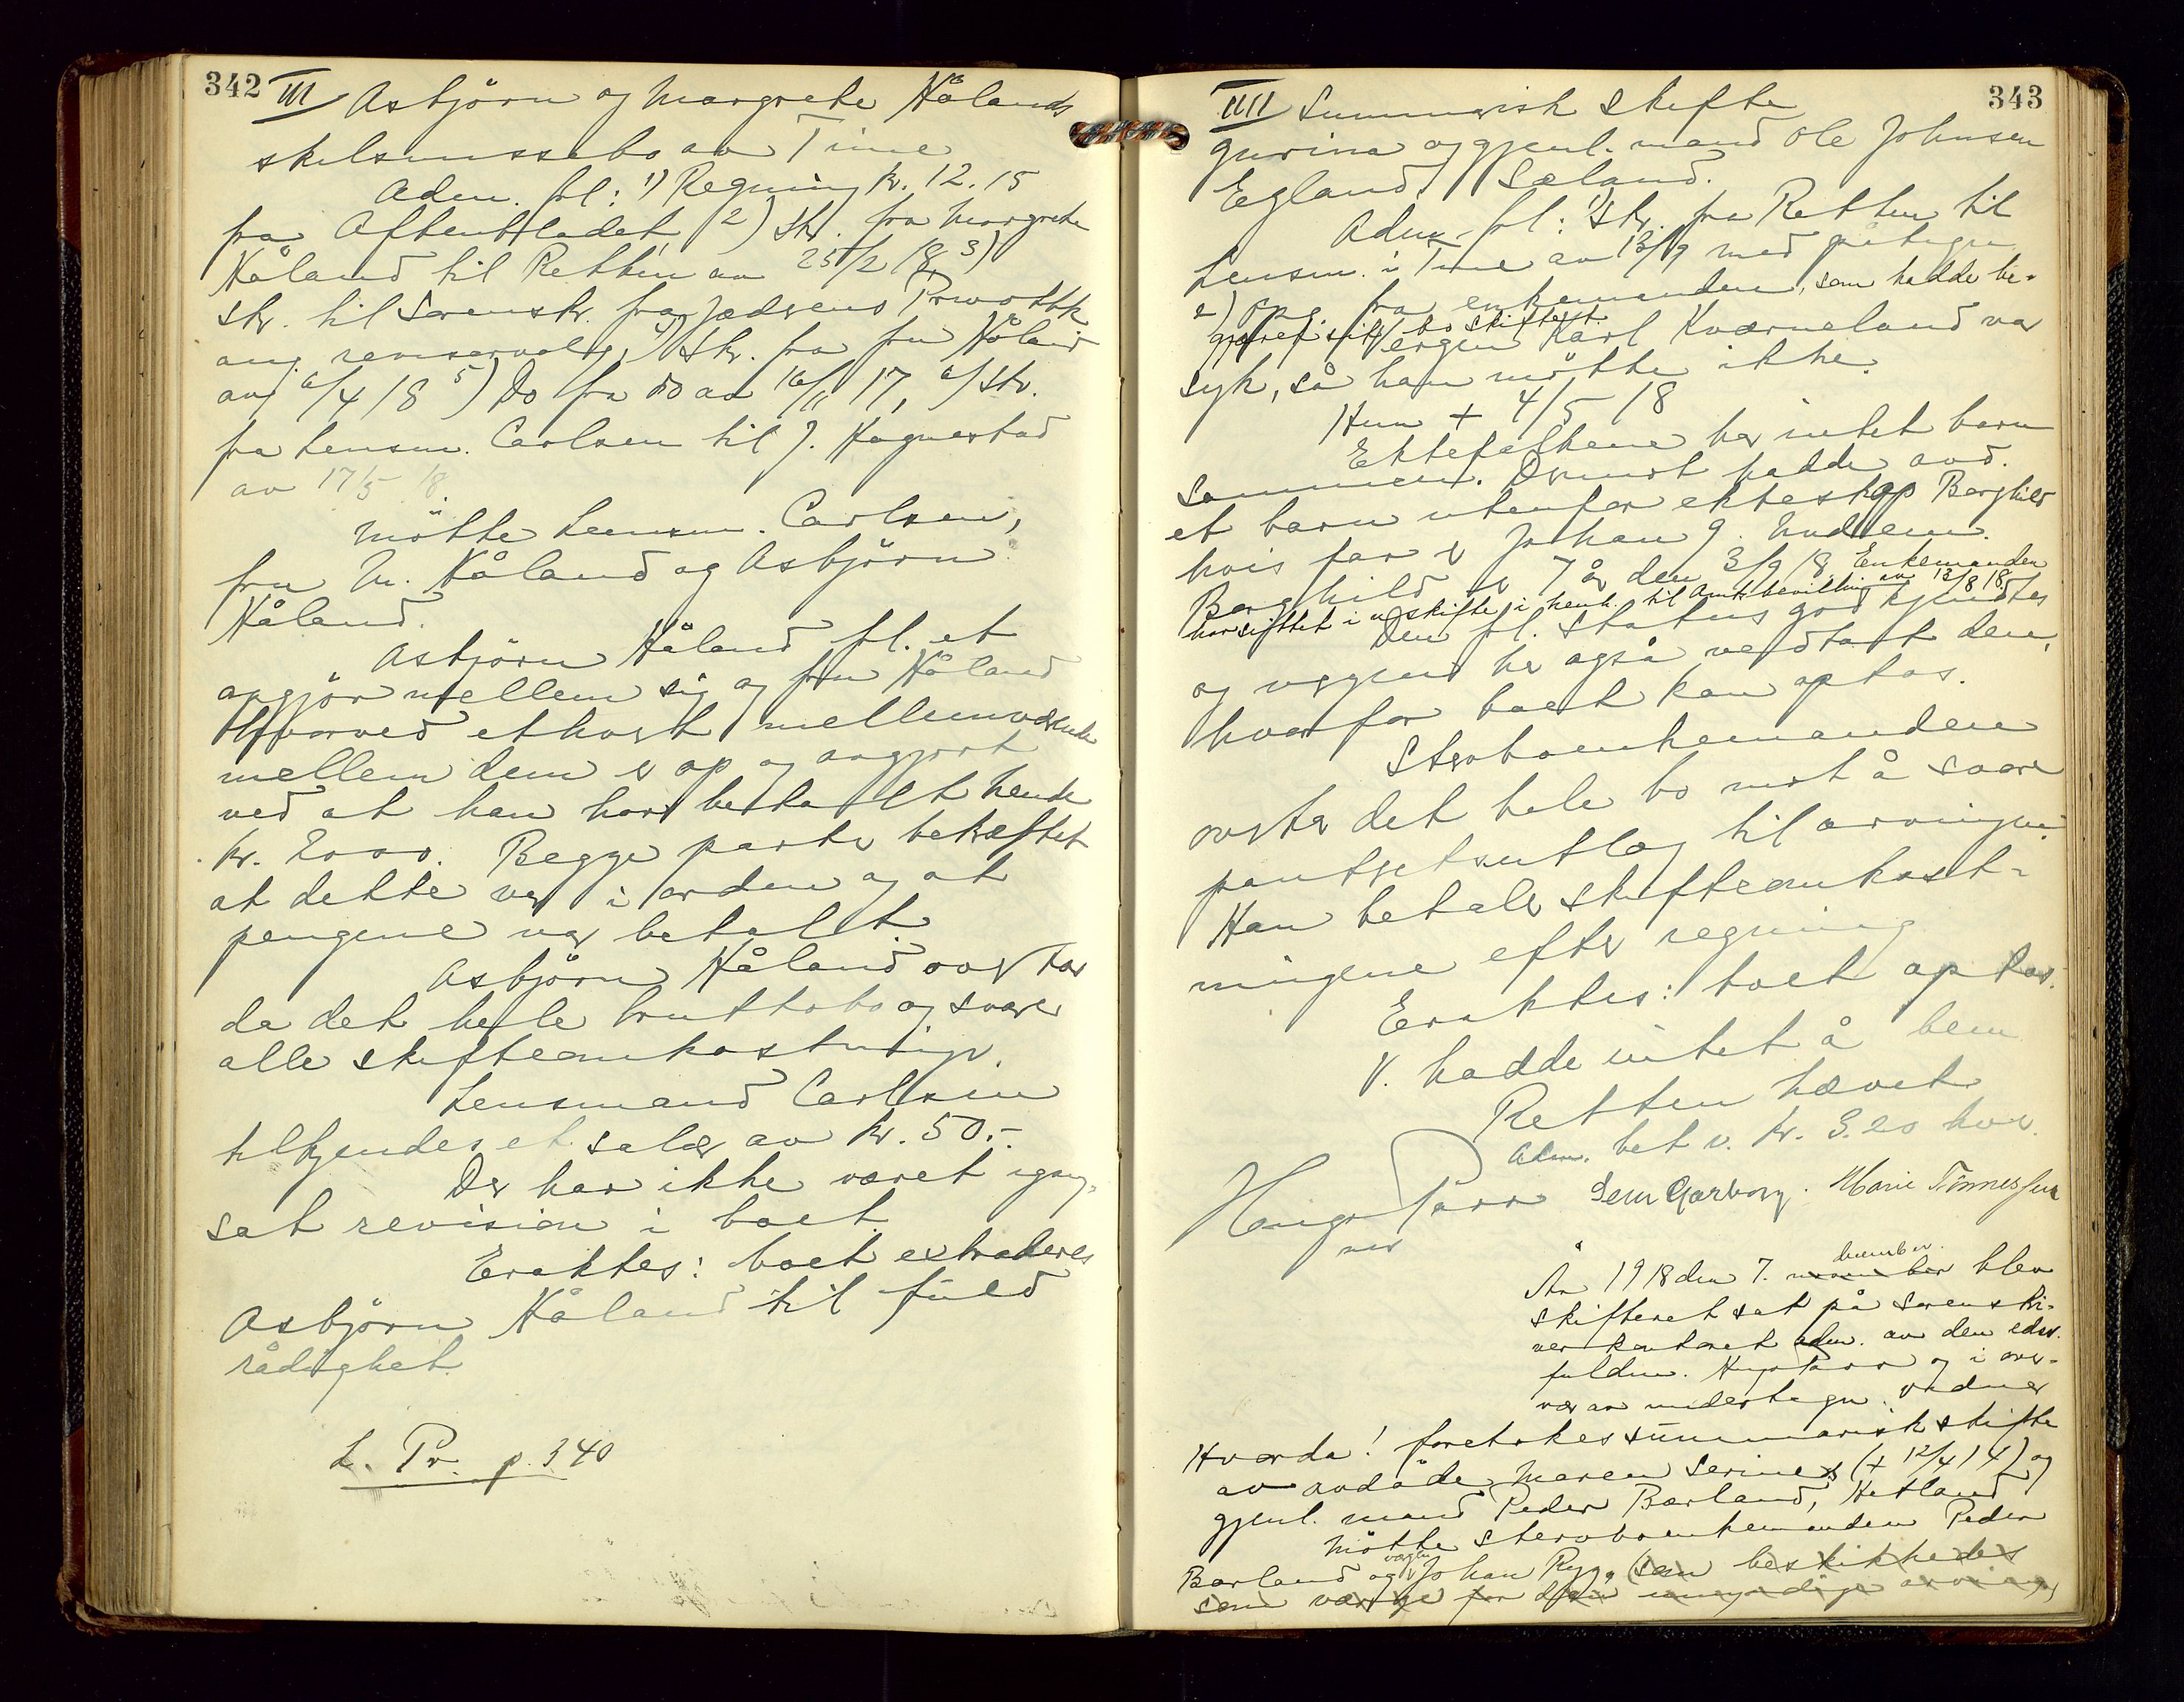 342 III Asbjörn og Margrete Hålands
skilsmissebo av Time
Adm. frl: 1) Regning kr. 12.15
fra Aftenbladet, 2) skr. fra Margrete
Håland til Retten av 25/2 18, 3)
skr. til Sorenskr. fra Jædrens Privatbk
ang. revisorvalg, 4) skr. fra fru Håland
av 6/4 18 5) Do fra do av 16/11 17, 6/ skr.
fra Lensm. Carlsen til J. Høgnestad
av 17/5 18.
Mötte Lensm. Carlsen,
fru M. Håland og Asbjörn
Håland.
Asbjörn Håland frl. et
opgjör mellem sig og fru Håland
hvorved ethvert mellemværende
mellem dem er op og avgjort
ved at han har betalt hende
kr. 2000. Begge parter bekræftet
at dette var i orden og at
pengene var betalt.
Asbjörn Håland overtar
da det hele bruttobo og svarer
alle skifteomkostninger.
Lensmand Carlsen
tilkjendes et salær av kr. 50.-
Der har ikke været igang-
sat revision i boet.
Eraktes: boet extraderes
Asbjörn Håland til fuld
rådighet.
L. Pr. p. 340
343
IIII Summarisk skifte
Gurina og gjenl. mand Ole Johnsen
Egland, Sæland.
Adm. frl: 1) Skr. fra Retten til
Lensm. i Time av 13/9 med påtegn.
2) opg. fra enkemanden, som hadde be-
gjæret sit bo skiftet.
Vergen Karl Kværneland var
syk, så han mötte ikke.
Hun + 4/5 18
Ektefolkene har intet barn
sammen. Derimot hadde avd.
et barn utenfor ekteskap Borghild
hvis far er Johan G. Undheim.
Borghild er 7 år den 3/9 18. Enkemanden
har sittet i uskifte i henh. til Amtsbevilling av 13/8 18,
Den frl. status godkjendtes
og vergen har også vedtatt den,
hvorfor boet kan optas.
Sterboenkemanden
overtar det hele bo mot å svare
pantsetsutlæg til arvingen.
Han betaler skifteomkost-
ningene efter regning
Eraktes: boet optas.
V. hadde intet å bem
Retten hævet
Adm. bet v. kr. 3.20 hver.
Hugo Parr Lem Garborg. Marie Tönnessen
År 1918 den 7. november december. blev
skifteret sat på sorenskri-
verkontoret adm. av den edsv.
fuldm. Hugo Parr og i over-
vær av undertegn. vidner
Hvorda! foretokes summarisk skifte
av avdöde Maren Serine (+ 12/4 14) og
gjenl. mand Peder Borland, Hetland
Mötte sterboenkemanden Peder
Borland og vergen Johan Rygg (som beskikkedes
som værge for den umyndige arving)